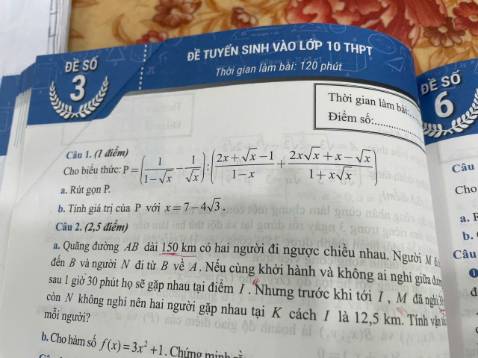 ĐỀ SỐ
3
ĐỀ TUYỂN SINH VÀO LỚP 10 THPT
Thời gian làm bài: 120 phút
Thời gian làm bài:
Điểm số:
Câu 1. (1 điểm)
Cho biểu thức: P = (1/(1-√x) - 1/√x) : ((2x+√x-1)/(1-x) + (2x√x+x-√x)/(1+x√x))
a. Rút gọn P.
b. Tính giá trị của P với x = 7-4√3.
Câu 2. (2,5 điểm)
a. Quãng đường AB dài 150 km có hai người đi ngược chiều nhau. Người M
đến B và người N đi từ B về A. Nếu cùng khởi hành và không ai nghỉ giữa
sau 1 giờ 30 phút họ sẽ gặp nhau tại điểm I. Nhưng trước khi tới I, M đã nghỉ
còn N không nghỉ nên hai người gặp nhau tại K cách I là 12,5 km. Tính vận
mỗi người?
b. Cho hàm số f(x) = 3x² + 1. Chứng minh
ĐỀ SỐ
6
Câu
Cho
a.
b.
Câu